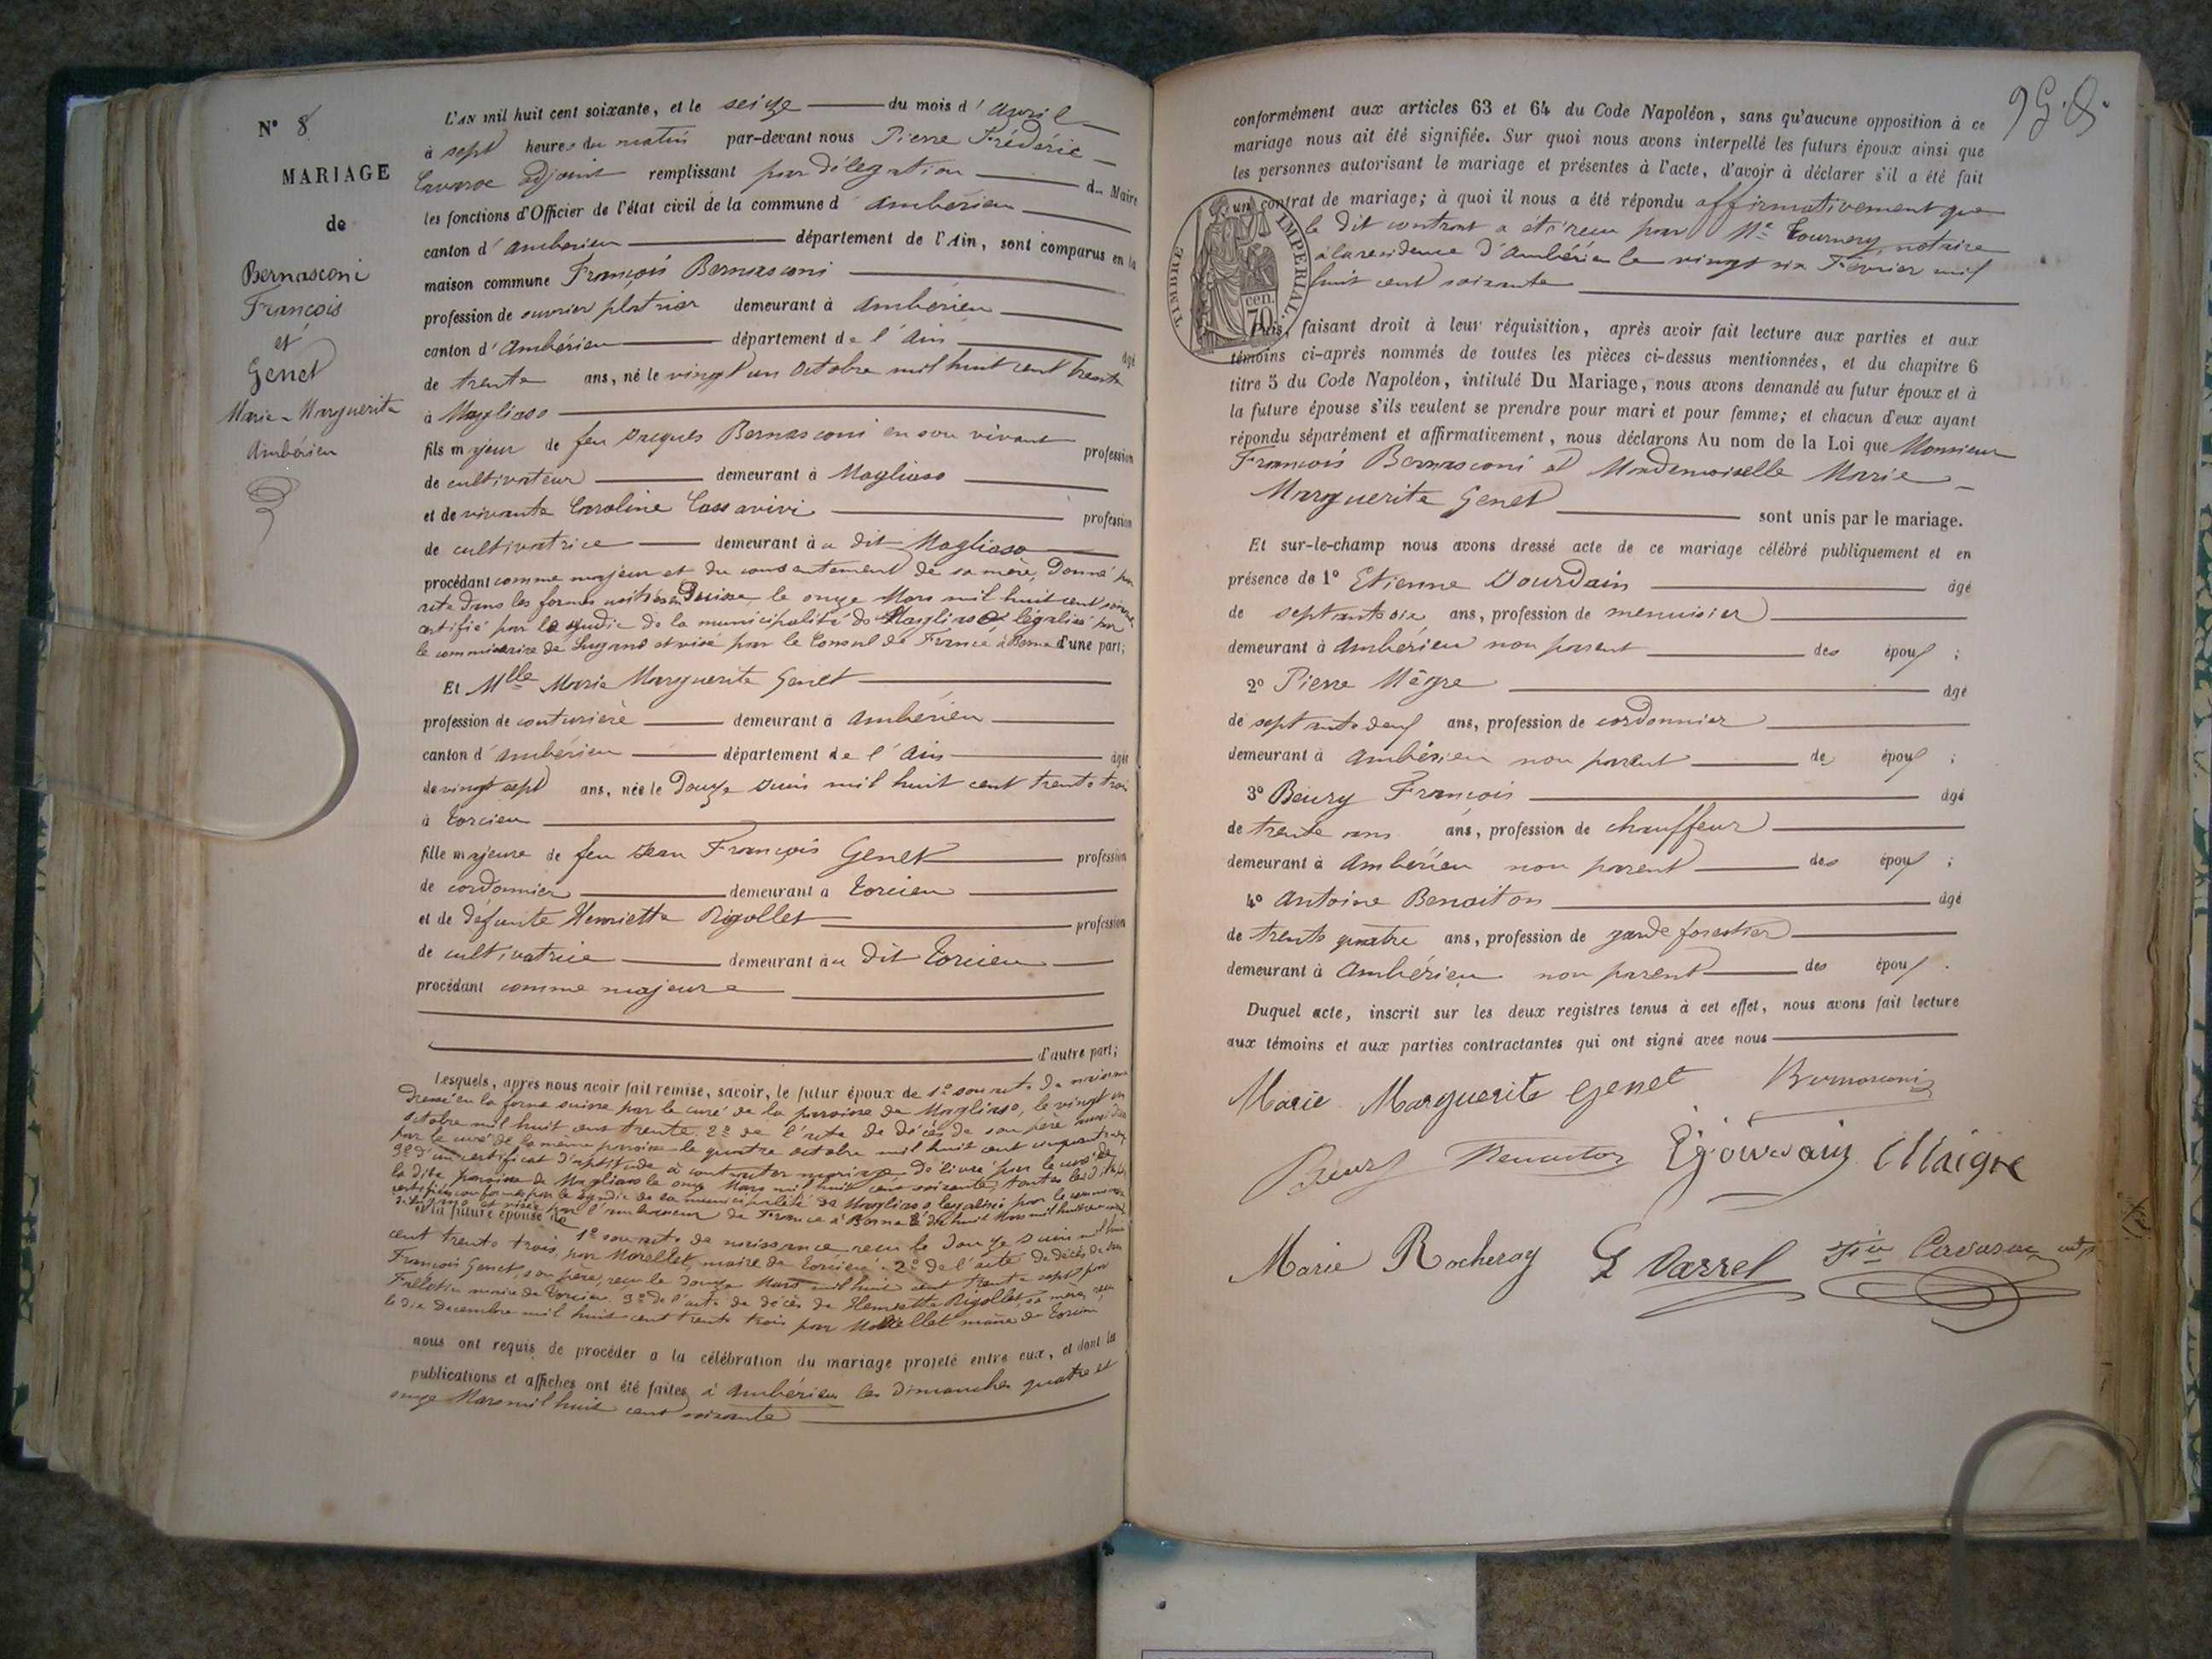 N° 8
MARIAGE
de
Bernasconi
François
et
Genet
Marie-Marguerite
Ambérieu
L'AN mil huit cent soixante, et le seize du mois d'avril
à sept heures du matin par-devant nous Pierre Frédéric
adjoint remplissant par délégation du Maire
les fonctions d'Officier de l'état civil de la commune d'ambérieu
canton d'ambérieu département de l'Ain, sont comparus en la
maison commune François Bernasconi
profession de ouvrier platrier demeurant à ambérieu
canton d'ambérieu département de l'ain âgé
de trente ans, né le vingt un octobre mil huit cent trente
à Magliaso
fils majeur de feu Jacques Bernasconi en son vivant profession
de cultivateur demeurant à Magliaso
et de vivante Caroline profession
de cultivatrice demeurant au dit Magliaso
procédant comme majeur et du consentement de sa mère, donné par
acte dans les formes usitées en Suisse, le onze Mars mil huit cent soixante
certifié par le syndic de la municipalité de Magliaso, légalisé par
le commissaire de Lugano et visé par le Consul de France à Berne d'une part;
Et Mlle Marie Marguerite Genet
profession de couturière demeurant à ambérieu
canton d'ambérieu département de l'ain âgée
de vingt sept ans, née le douze Juin mil huit cent trente trois
à Torcieu
fille majeure de feu Jean François Genet profession
de cordonnier demeurant à Torcieu
et de défunte Henriette Rigollet profession
de cultivatrice demeurant au dit Torcieu
procédant comme majeure
d'autre part;
Lesquels, après nous avoir fait remise, savoir, le futur époux de 1° son acte de naissance
dressé en la forme suisse par le curé de la paroisse de Magliaso, le vingt un
octobre mil huit cent trente. 2° de l'acte de décès de son père aussi
par le curé de la même paroisse le quatre octobre mil huit cent cinquante
3° d'un certificat d'aptitude à contracter mariage délivré par le curé de
la dite paroisse de Magliaso le onze Mars mil huit cent soixante, toutes les dites
certifiées conformes par le syndic de la municipalité de Magliaso légalisé par le commissaire
par l'ambassadeur de France à Berne le dix huit Mars mil huit cent
et la future épouse de 1° son acte de naissance reçu le douze Juin mil huit
cent trente trois, par Morellet, maire de Torcieu. 2° de l'acte de décès de
François Genet, son père, reçu le douze Mars mil huit cent trente sept par
maire de Torcieu. 3° de l'acte de décès de Henriette Rigollet, sa mère, reçu
le dix Décembre mil huit cent trente trois par Morellet maire de Torcieu
nous ont requis de procéder à la célébration du mariage projeté entre eux, et dont les
publications et affiches ont été faites à ambérieu les dimanches quatre et
onze Mars mil huit cent soixante
conformément aux articles 63 et 64 du Code Napoléon, sans qu'aucune opposition à ce
mariage nous ait été signifiée. Sur quoi nous avons interpellé les futurs époux ainsi que
les personnes autorisant le mariage et présentes à l'acte, d'avoir à déclarer s'il a été fait
un contrat de mariage; à quoi il nous a été répondu affirmativement que
le dit contrat a été reçu par Me Tournery, notaire
à la residence d'ambérieu le vingt six Février mil
huit cent soixante
TIMBRE IMPERIAL.
70 cen.
Puis, faisant droit à leur réquisition, après avoir fait lecture aux parties et aux
témoins ci-après nommés de toutes les pièces ci-dessus mentionnées, et du chapitre 6
titre 5 du Code Napoléon, intitulé Du Mariage, nous avons demandé au futur époux et à
la future épouse s'ils veulent se prendre pour mari et pour femme; et chacun d'eux ayant
répondu séparément et affirmativement, nous déclarons Au nom de la Loi que Monsieur
François Bernasconi et Mademoiselle Marie
Marguerite Genet sont unis par le mariage.
Et sur-le-champ nous avons dressé acte de ce mariage célébré publiquement et en
présence de 1° Etienne Jourdain âgé
de ans, profession de menuisier
demeurant à ambérieu non parent des époux ;
2° Pierre Mègre âgé
de ans, profession de cordonnier
demeurant à ambérieu non parent des époux ;
3° Beury François âgé
de trente ans ans, profession de chauffeur
demeurant à ambérieu non parent des époux ;
4° Antoine Benoiton âgé
de trente quatre ans, profession de garde forestier
demeurant à ambérieu non parent des époux .
Duquel acte, inscrit sur les deux registres tenus à cet effet, nous avons fait lecture
aux témoins et aux parties contractantes qui ont signé avec nous
Marie Marguerite Genet Bernasconi
Beury Benoiton Ejourdain Maigre
Marie Rocheray G Varrel